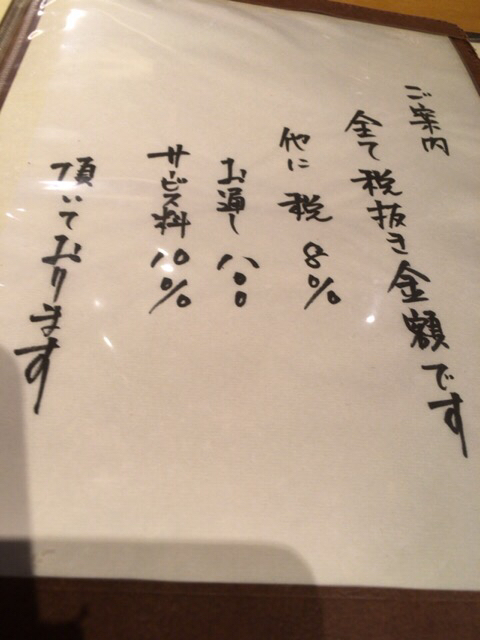 ご案内
全て税抜き金額です
他に 税 8%
お通し 八〇〇
サービス料 10%
頂いております